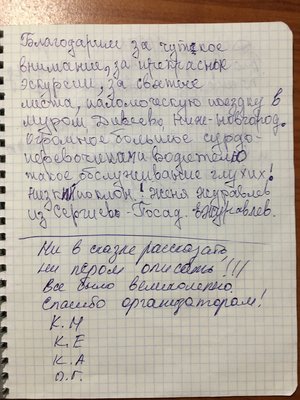 Благодарим за чуткое
внимание, за прекрасное
эскурсии, за святые
места, паломическую поездку в
муром, Дивеево, Нижн-новгород.
Огромное большое сурдо-
переводчикам водителю
такое обслуживание глухих!
Низкий поклон! Женя Журавлев
из Сергиев-Посад. вЖуравлев.
Ни в сказке рассказать
ни пером описать!!!
Все было великолепно.
Спасибо организаторам!
К.Н
К.Е
К.А
О.Г.